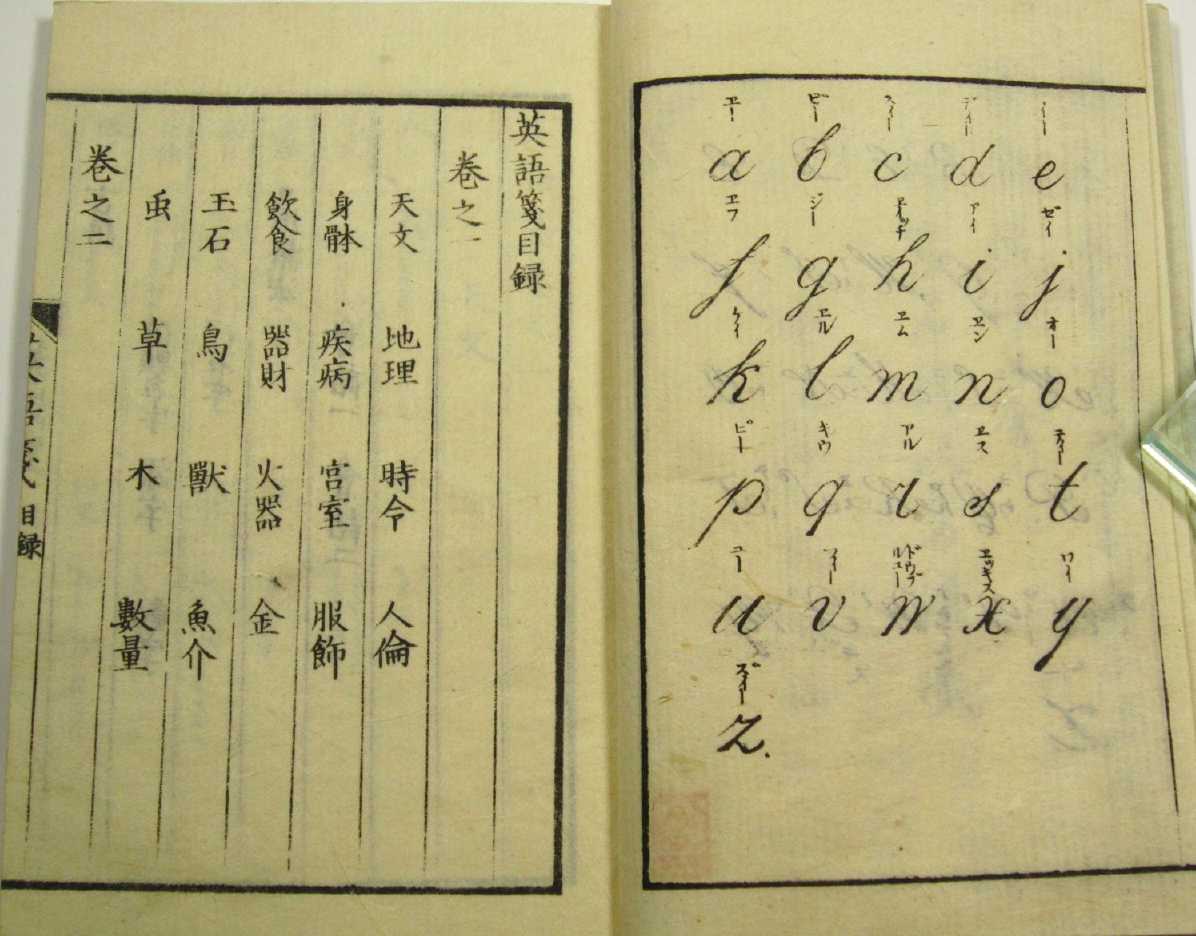 エー ビー スィー ディー イー
a b c d e
ヱフ ジー ヱッチ アイ ゼイ
f g h i j
ケイ ヱル ヱム ヱン オー
k l m n o
ピー キウ アル ヱス ティー
p q r s t
ユー ヴィー ドウブルユー ヱッキス ワイ
u v w x y
ズィー
z.
英語箋目録
巻之一
天文 地理 時令 人倫
身體 疾病 宮室 服飾
飲食 器財 火器 金
玉石 鳥 獸 魚介
虫 草 木 數量
巻之二
英語箋 目録